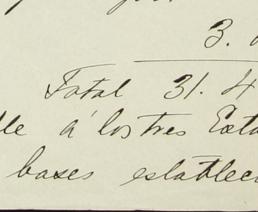 3.
Total 31. 4
lle á los tres Esta
bases establec